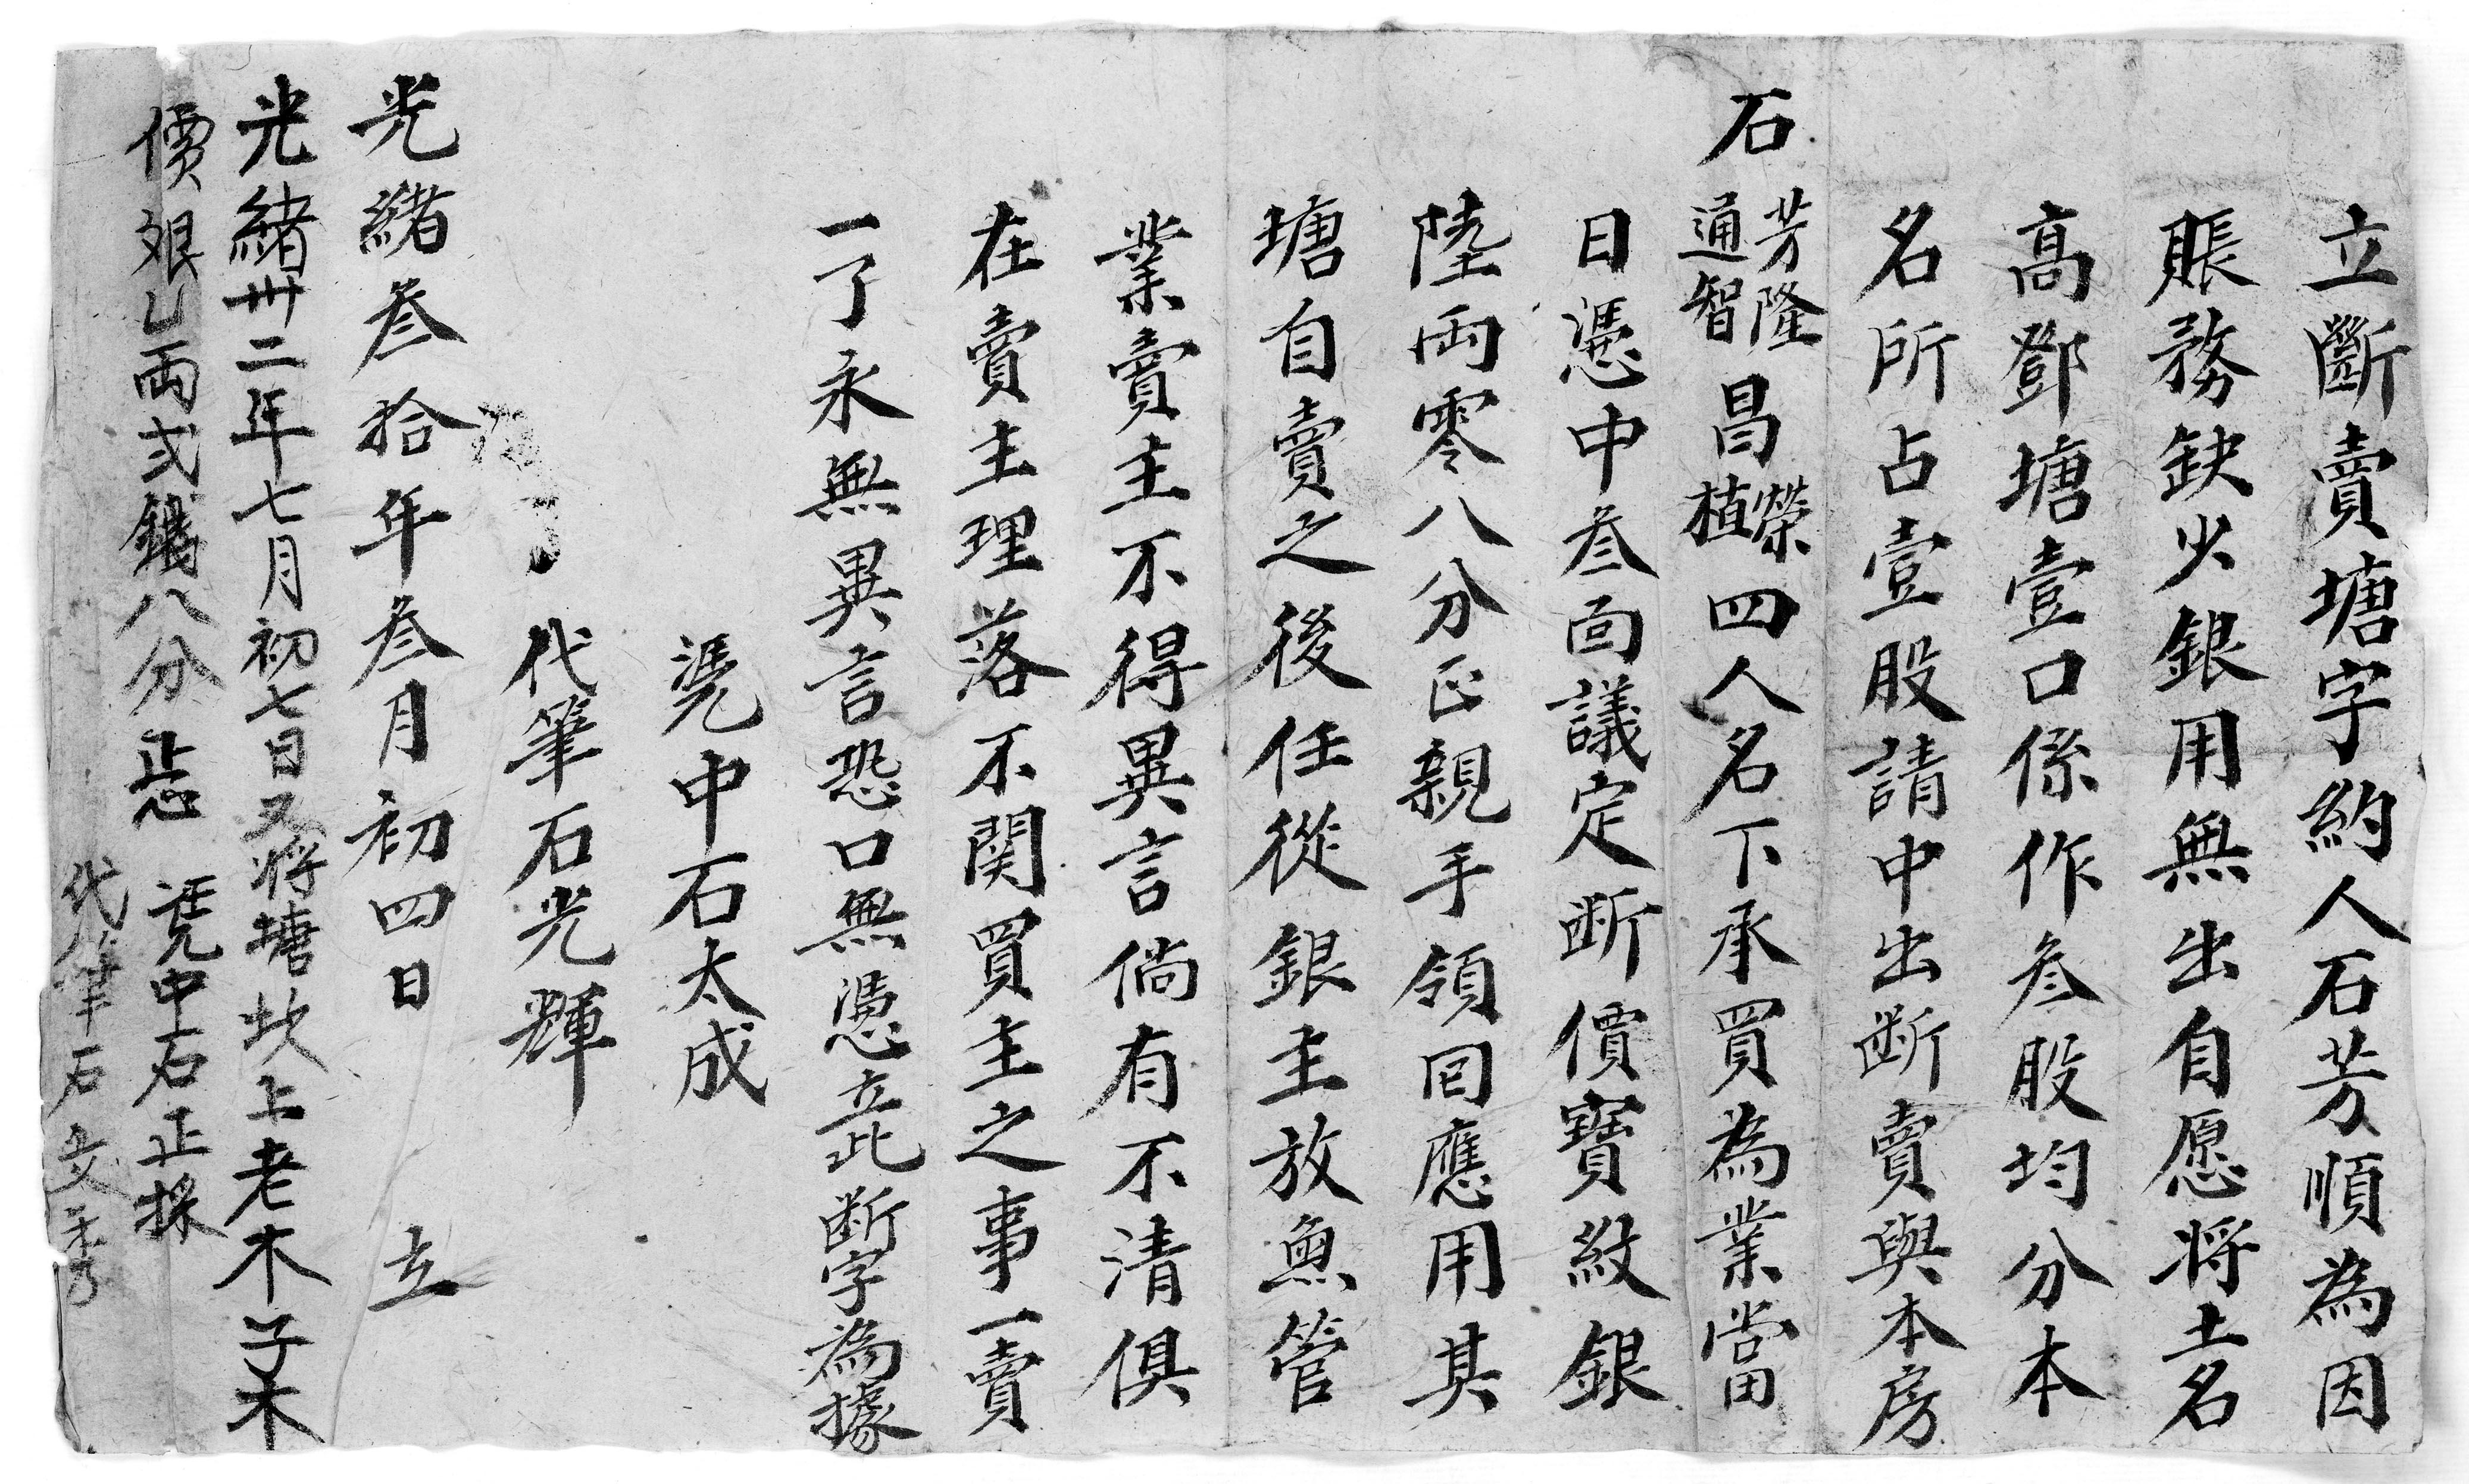 立斷賣塘字約人石芳順為因
賬務缺少銀用無出自愿将土名
高鄧塘壹口係作叁股均分本
名所占壹股請中出断賣與本房
石芳隆通智昌榮植四人名下承買為業當
日憑中叁面議定断價寶紋銀
陸両零八分正親手領囬應用其
塘自賣之後任從銀主放魚管
業賣主不得異言倘有不清俱
在賣主理落不関買主之事一賣
一了永無異言恐口無憑立此断字為據
凴中石太成
代筆石光輝
光緒叁拾年叁月初四日 立
光緒卅二年七月初七日又将塘坎上老木子木
價艮乚両弍錢八分 凴中石正採
代筆石文秀